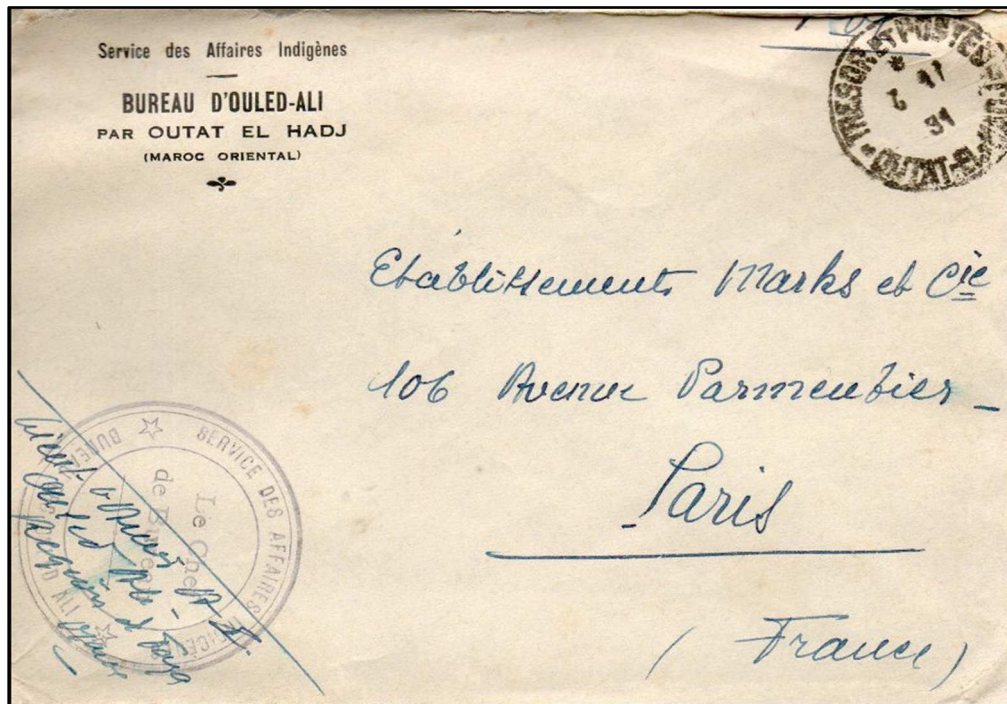 Service des Affaires Indigènes
BUREAU D'OULED-ALI
PAR OUTAT EL HADJ
(MAROC ORIENTAL)
TRESOR ET POSTES
OUTAT-EL-
11
31
Etablissements Marks et Cie
106 Avenue Parmentier -
Paris
(France)
SERVICE DES AFFAIRES
BUREAU
ALI
Le Chef
de Bureau
Ouled Ali